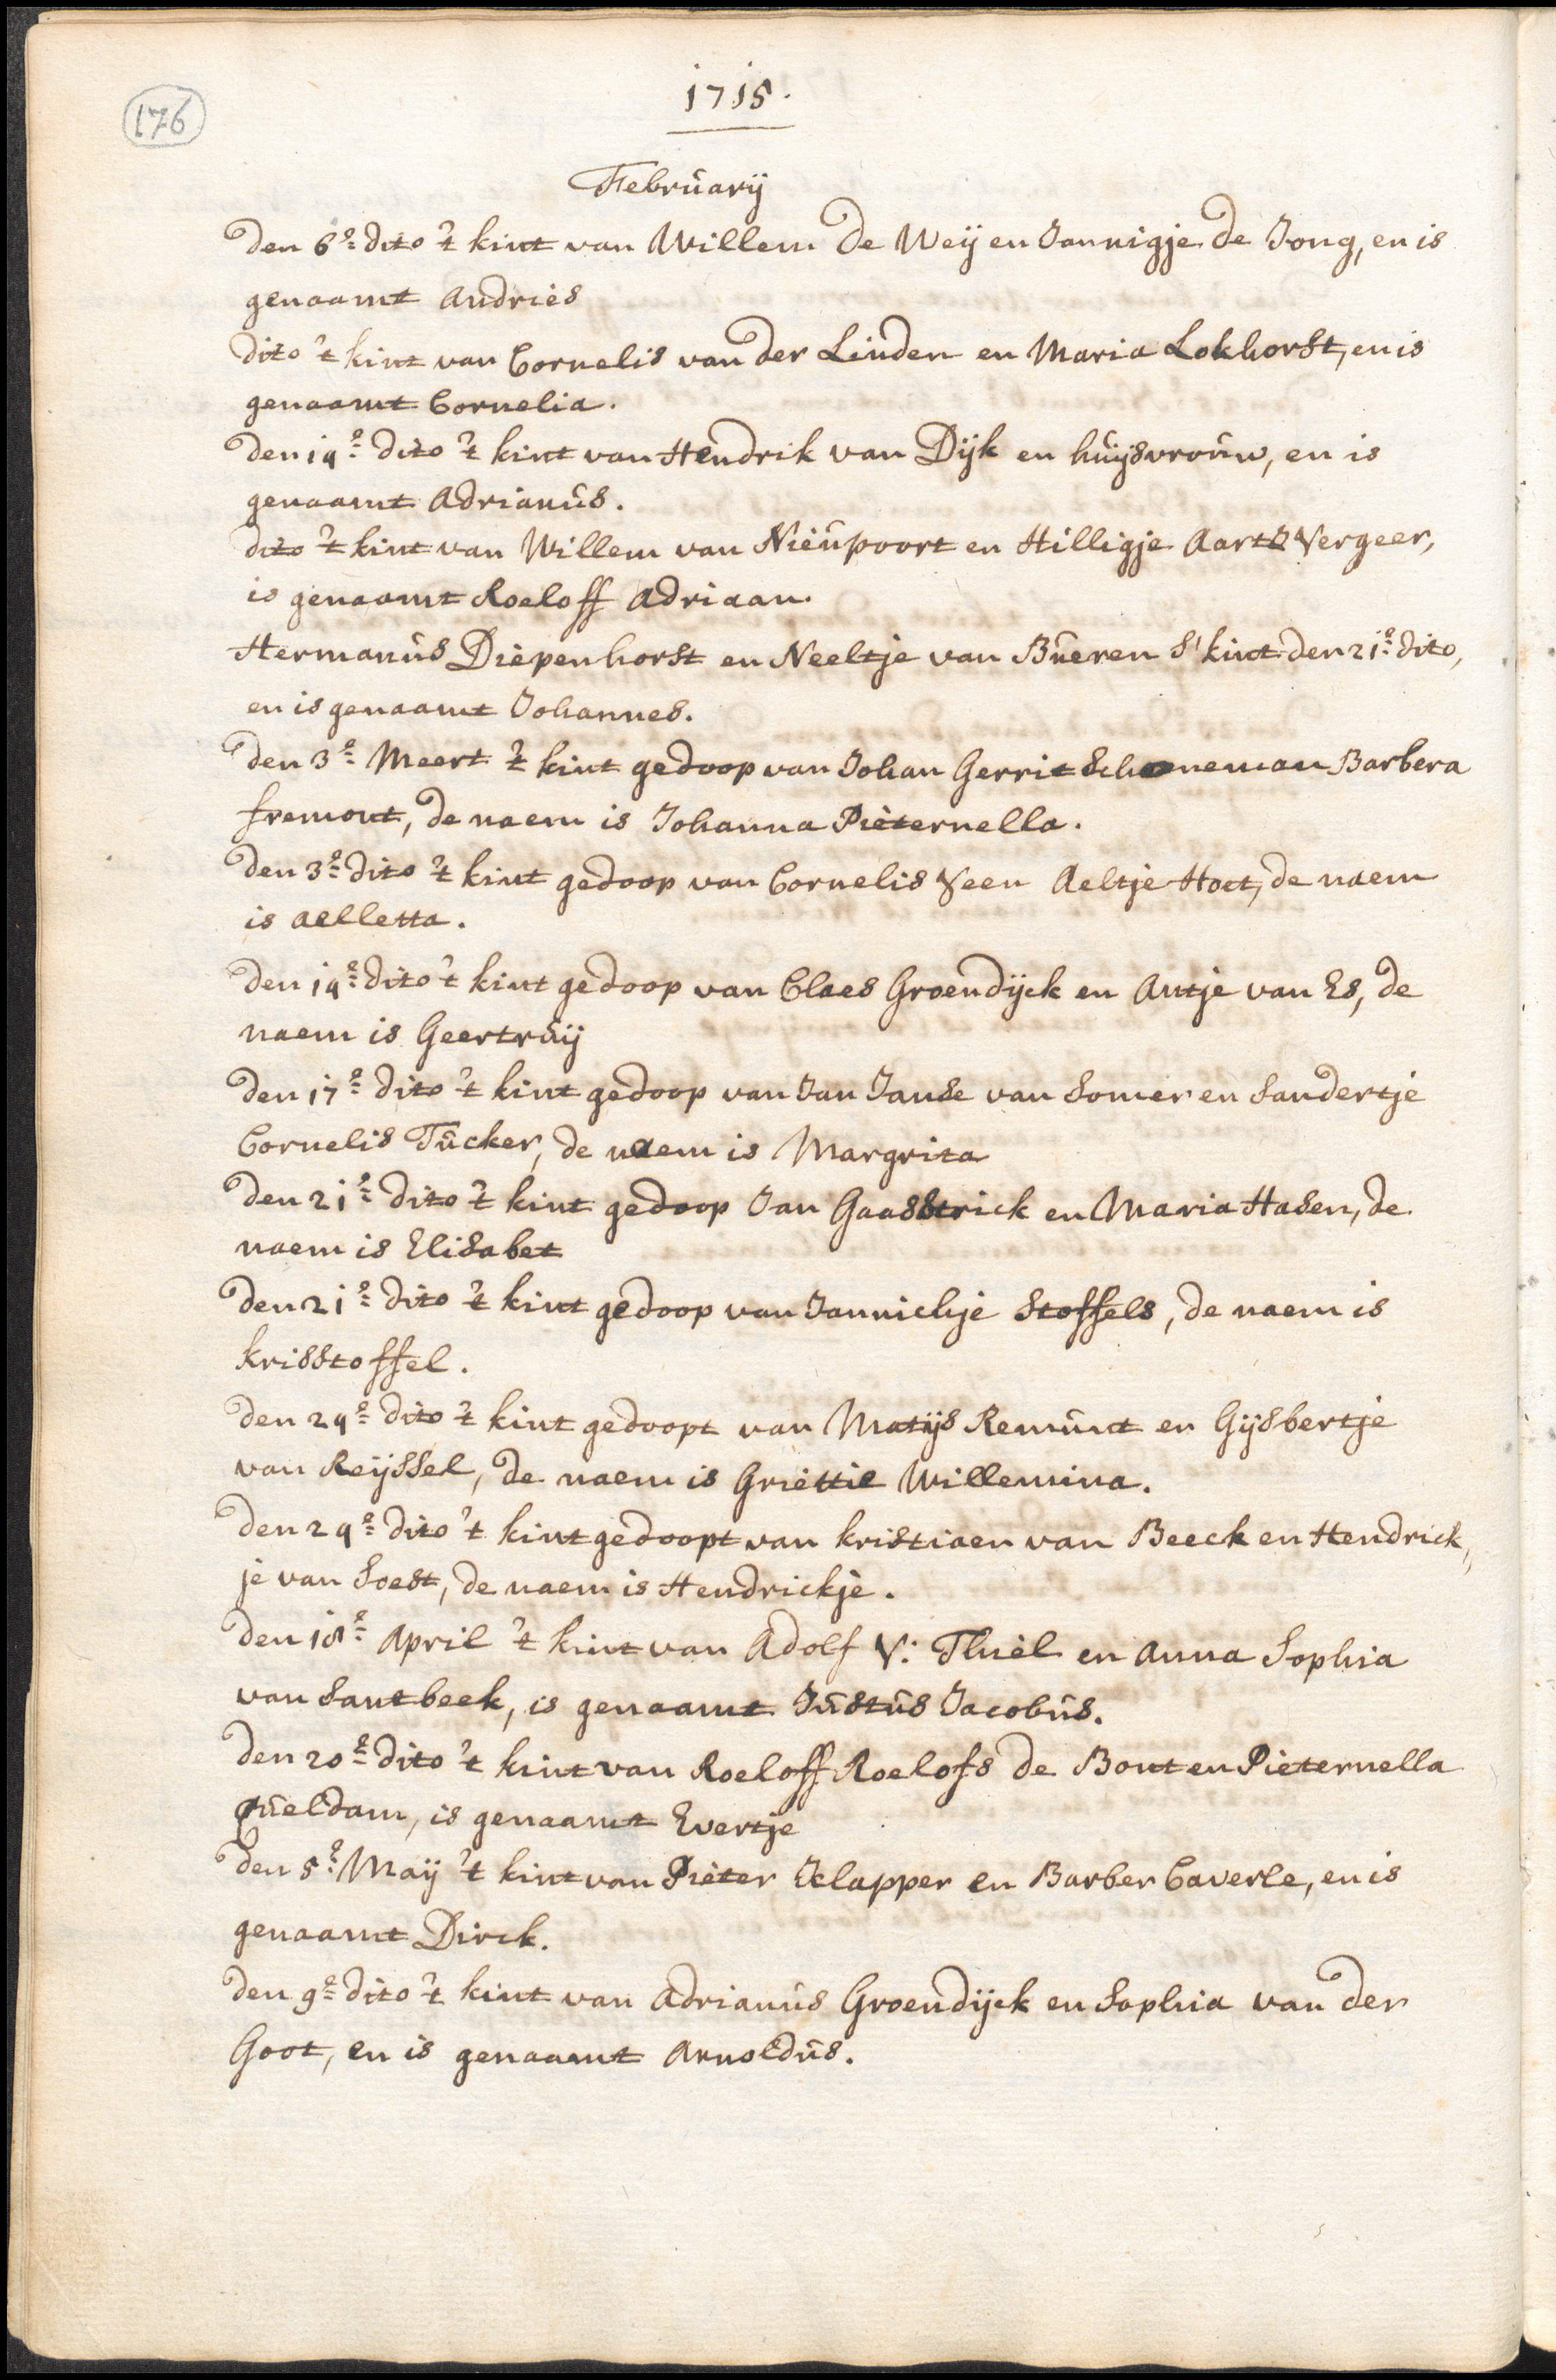 176
1715.
Februarij
Den 6e dito 't kint van Willem De Weij en Jannigje de Jong, en is
genaamt Andries
Dito 't kint van Cornelis van der Linden en Maria Lokhorst, en is
genaamt Cornelia.
Den 14e dito 't kint van Hendrik van Dijk en huijsvrouw, en is
genaamt Adrianus.
dito 't kint van Willem van Nieupoort en Hilligje Aarts Vergeer,
is genaamt Roeloff Adriaan.
Hermanus Diepenhorst en Neeltje van Bueren S' kint den 21e dito,
en is genaamt Johannes.
Den 3e Meert 't kint gedoop van Johan Gerrit Schoneman Barbera
fremont, de naem is Johanna Pieternella.
Den 3e dito 't kint gedoop van Cornelis Veen Aeltje Hoet, de naem
is Aelletta.
Den 14e dito 't kint gedoop van Claes Groendijck en Antje van Es, de
naem is Geertruij
Den 17e dito 't kint gedoop van Jan Janse van Somer en Sandertje
Cornelis Tucker, de naem is Margrita
Den 21e dito 't kint gedoop Jan Gaasstrick en Maria Hasen, de
naem is Elisabet
Den 21e dito 't kint gedoop van Jannichje Stoffels, de naem is
krisstoffel.
Den 24e dito 't kint gedoopt van Matijs Remunt en Gijsbertje
van Reijssel, de naem is Griettie Willemina.
Den 24e dito 't kint gedoopt van kristiaen van Beeck en Hendrick,,
je van Soest, de naem is Hendrickje.
Den 18e April 't kint van Adolf V: Thiel en Anna Sophia
van Santbeek, is genaamt Justus Jacobus.
Den 20e dito 't kint van Roeloff Roelofs de Bont en Pieternella
Queldam, is genaamt Evertje
Den 5e Maij 't kint van Pieter Klapper en Barber Caverle, en is
genaamt Dirck.
Den 9e dito 't kint van Adrianus Groendijck en Sophia van der
Goot, en is genaamt Arnoldus.